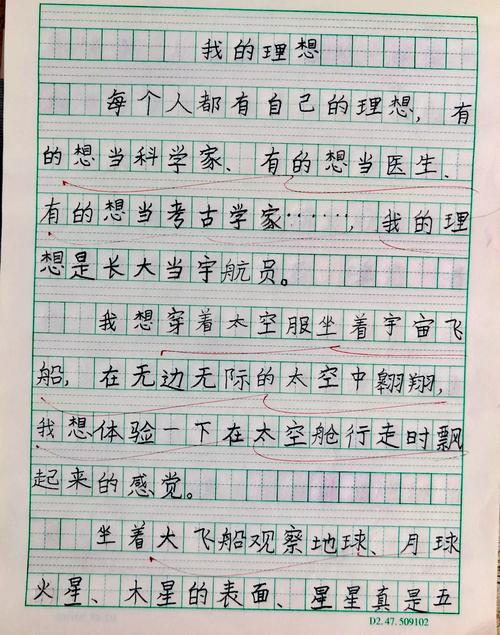 我的理想
每个人都有自己的理想，有
的想当科学家、有的想当医生、
有的想当考古学家……，我的理
想是长大当宇航员。
我想穿着太空服坐着宇宙飞
船，在无边无际的太空中翱翔，
我想体验一下在太空舱行走时飘
起来的感觉。
坐着大飞船观察地球、月球
火星、木星的表面、星星真是五
D2.47.509102